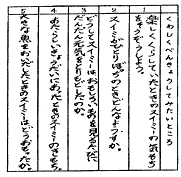 くわしくべんきょうしてみたいところ
1 楽しくくらしていたときのスイミーの気もち
をそうぞうしよう。
2 スイミーがひとりぼっちのときどんなようすか。
3 どうしてスイミーはおもしろい物を見る
だんだん元気をとりもどしたのか。
4 あたらしいきょうだいにあったときのスイミーのきもち。
5 大きな魚をおい出したときのスイミーはどうおもったか。